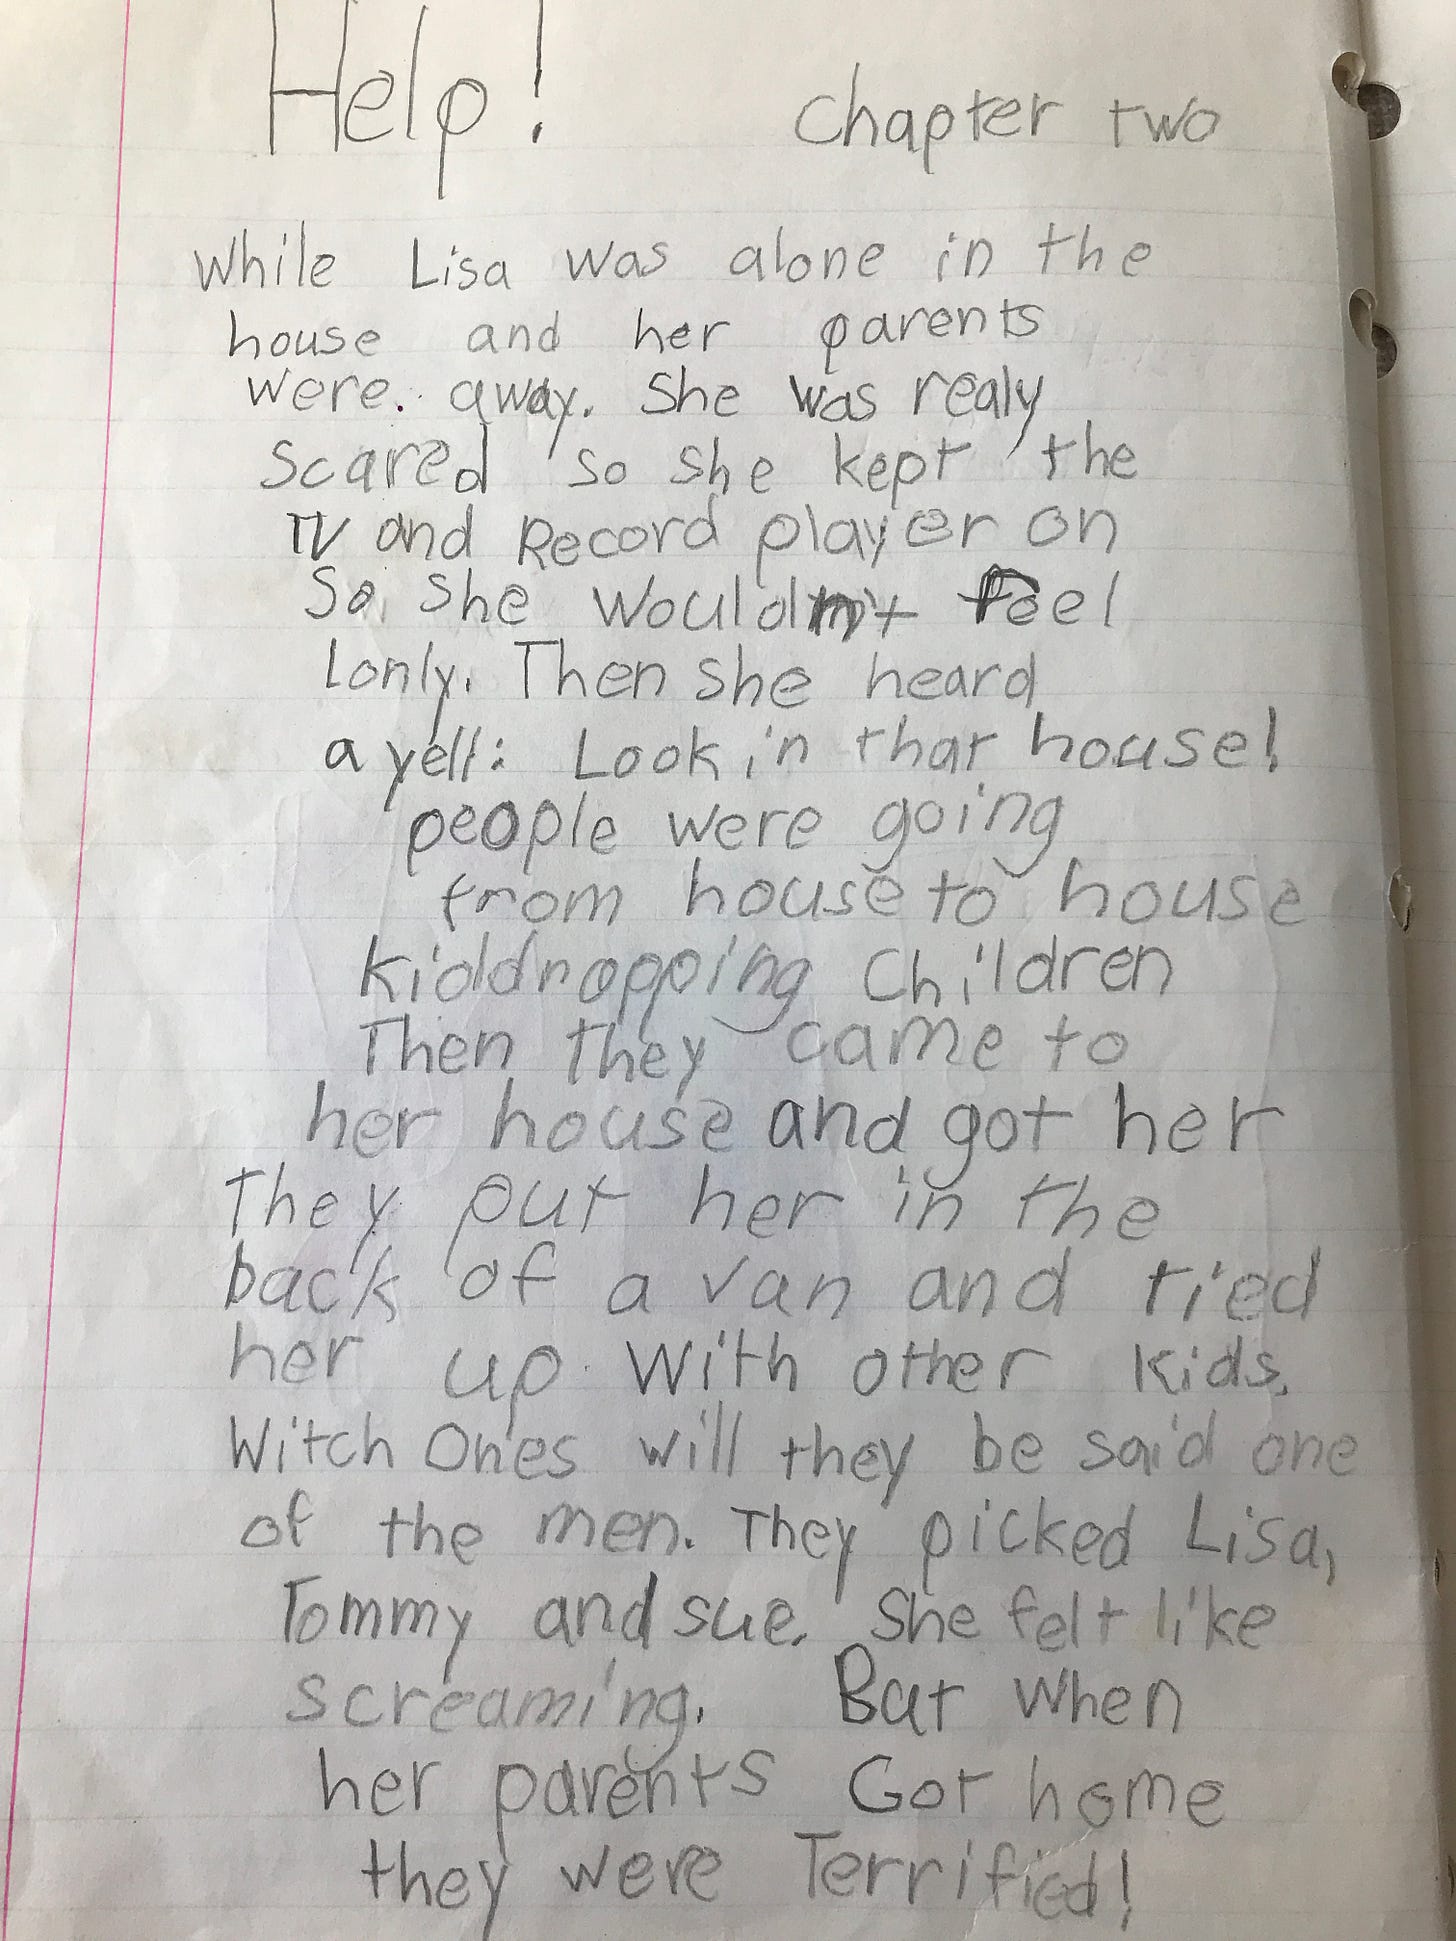 Help! Chapter two
While Lisa was alone in the
house and her parents
were. away. She was realy
scared so she kept the
TV and Record player on
So she wouldn't feel
lonly. Then she heard
a yell: Look in that house!
people were going
from house to house
kiddnapping Children
Then they came to
her house and got her
They put her in the
back of a van and tied
her up with other kids.
Witch Ones will they be said one
of the men. They picked Lisa,
Tommy and sue. She felt like
screaming. But when
her parents Got home
they were Terrified!